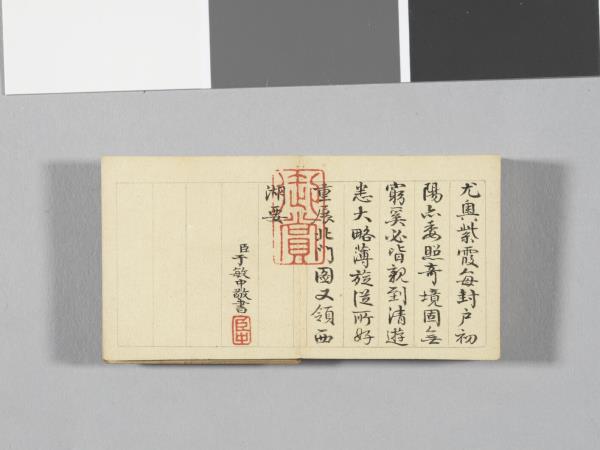 尤奧紫霞每封戶初
陽亦委照奇境固無
窮奚必皆親到清遊
悉大略薄旋從所好
重展北門圖又領西
湖要
御賞
臣于敏中敬書
臣中